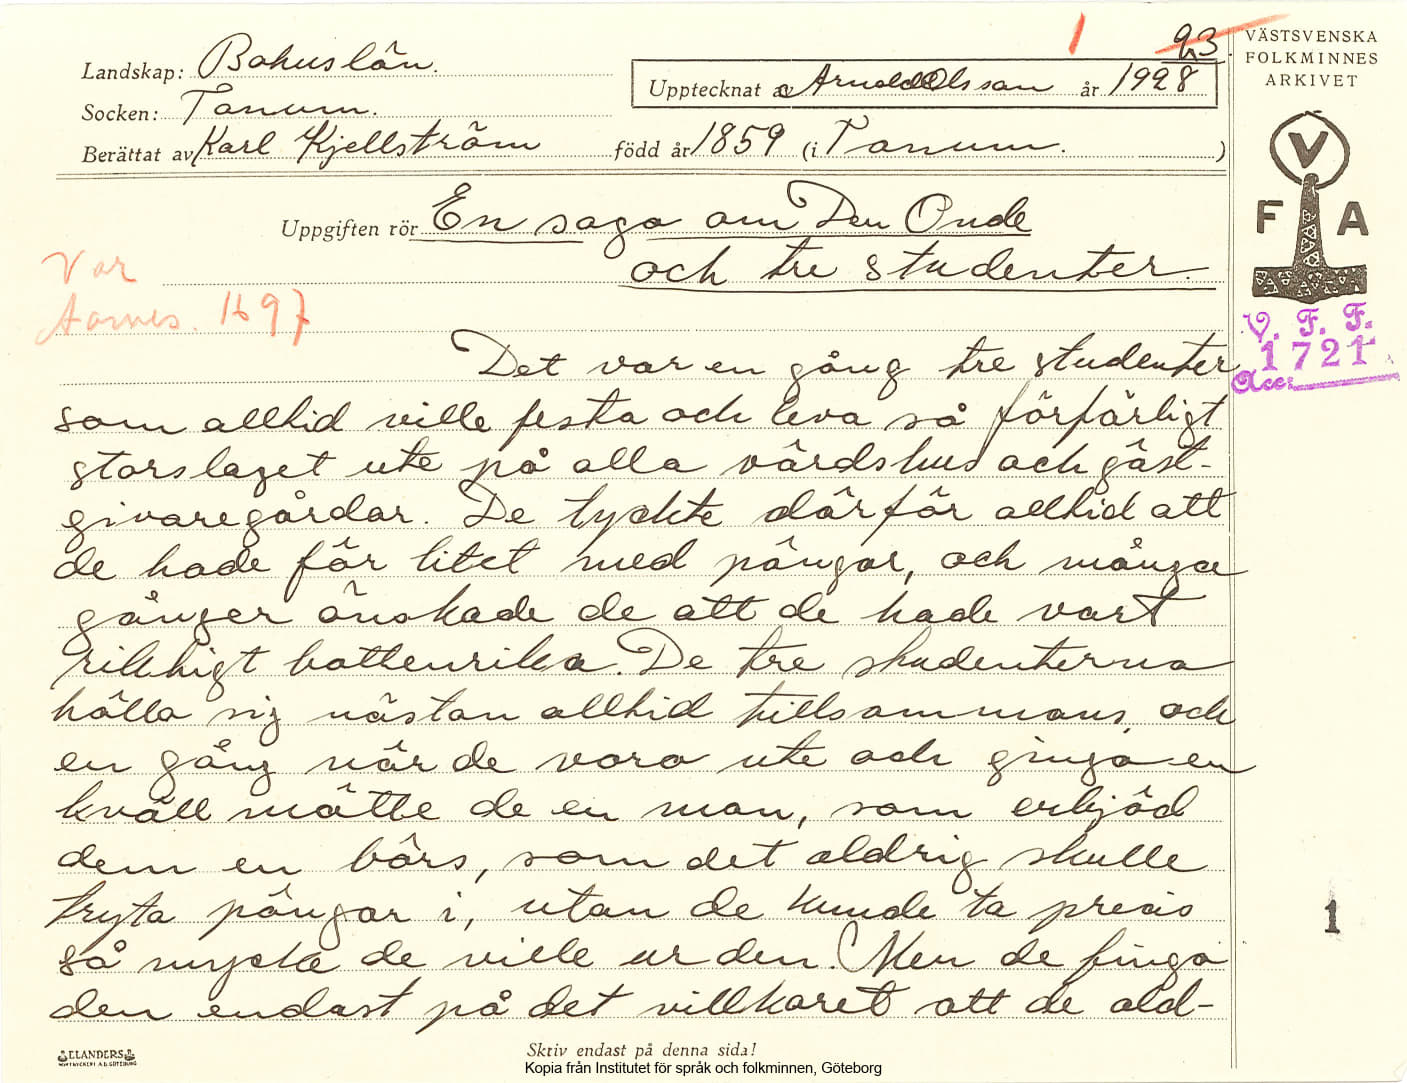 Landskap: Bohuslän.
Socken: Tanum.
Berättat av Karl Kjellström
Upptecknat av Arnold Olsson år 1928
född år 1859 (i Tanum. )
1
23.
VÄSTSVENSKA
FOLKMINNES
ARKIVET
V
F A
V. F. F.
1721
Acc:
Uppgiften rör En saga om Den Onde
och tre studenter.
Var
Aarnes. 1697
Det var en gång tre studenter
som alltid ville festa och leva så förfärligt
storslaget ute på alla värdshus och gäst-
givaregårdar. De tyckte därför alltid att
de hade för litet med pängar, och många
gånger önskade de att de hade vart
riktigt bottenrika. De tre studenterna
hålla sig nästan alltid tillsammans, och
en gång när de voro ute och gingo en
kväll mötte de en man, som erbjöd
dem en börs, som det aldrig skulle
tryta pängar i, utan de kunde ta precis
så mycke de ville ur den. Men de fingo
den endast på det villkoret att de ald-
1
ELANDERS
Skriv endast på denna sida!
Kopia från Institutet för språk och folkminnen, Göteborg